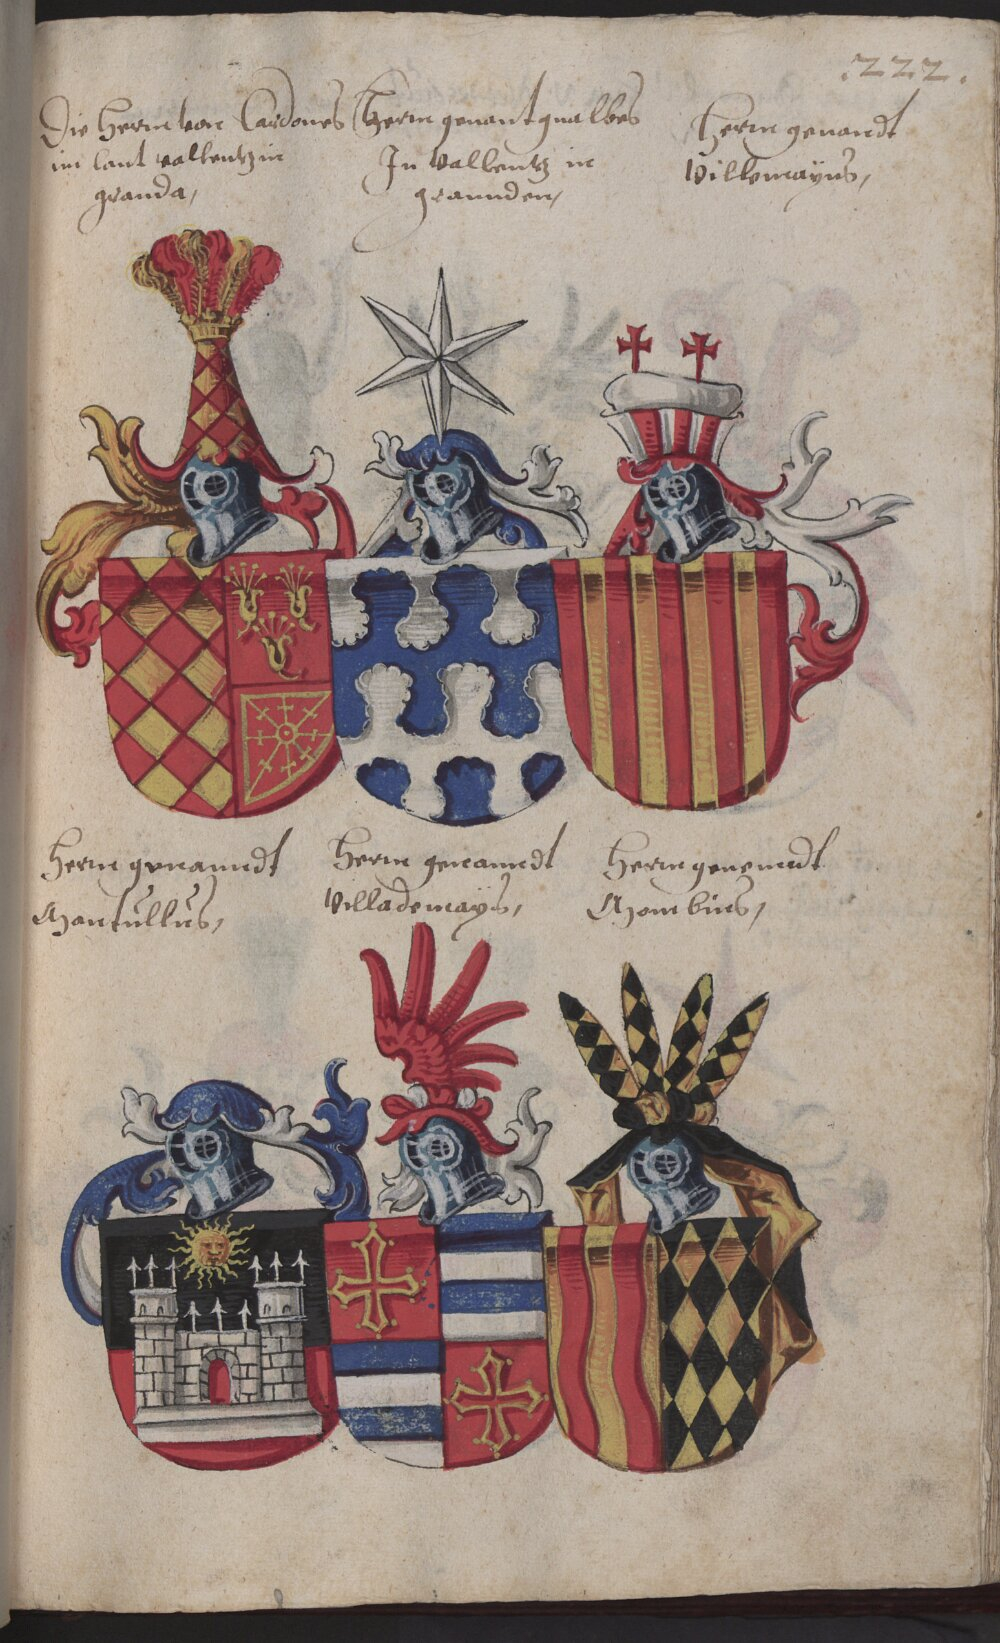 .222.
Die Herrn von Cardones
im lant vallentz in
granda,
Herrn genant gualbes
In Vallentz in
grannden,
Herrn genandt
Villemayns,
Herrn genanndt
Montullus,
Herrn genanndt
Villademays,
Herrn genenndt
Mombuis,